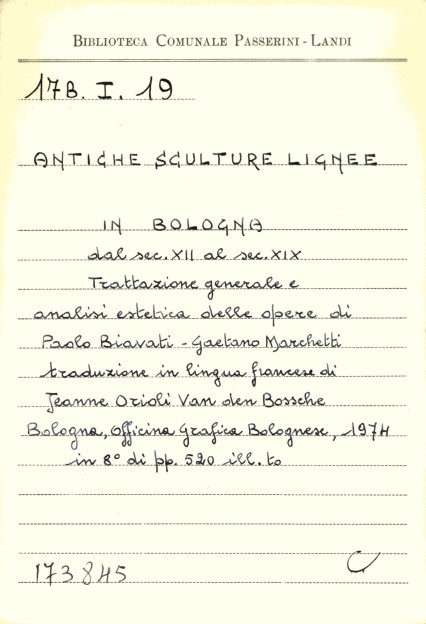 BIBLIOTECA COMUNALE PASSERINI - LANDI
17B. I. 19
ANTICHE SCULTURE LIGNEE
IN BOLOGNA
dal sec. XII al sec. XIX
Trattazione generale e
analisi estetica delle opere di
Paolo Biavati - Gaetano Marchetti
traduzione in lingua francese di
Jeanne Orioli Van den Bossche
Bologna, Officina Grafica Bolognese, 1974
in 8° di pp. 520 ill. to
C
173845